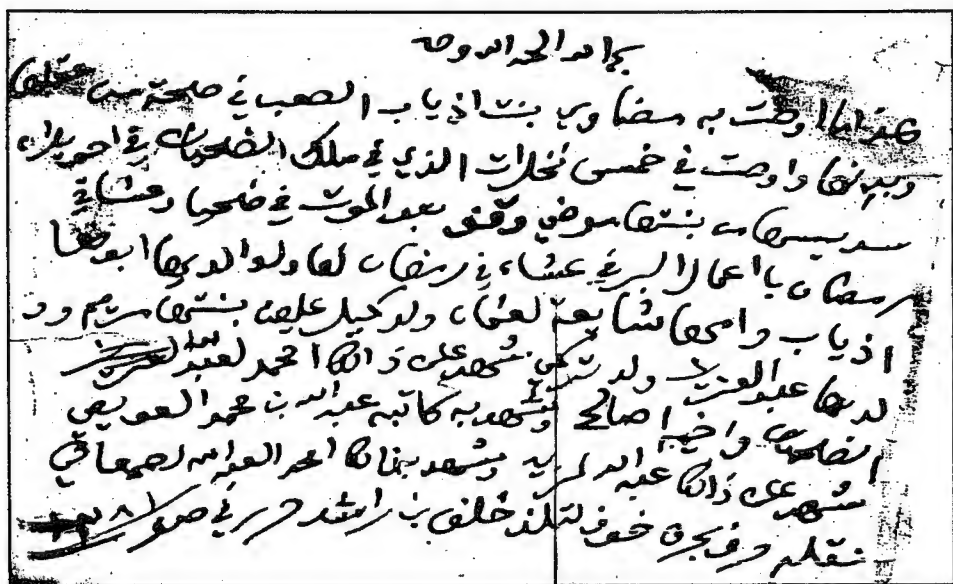 الحمد لله وحده
هذا ما اوصت به مضاوي بنت اذياب الصعب في صحة من عقلها
وبدنها واوصت في خمس نخلات الذي في ملك الضلحيان في
بنتها موضي وقف بعد الموت في ضحيا وعشا في
رمضان با اعمال البر في عشاء في رمضان لها ولوالديها ابوها
اذياب وامها شايعه لعثمان ولوكيل عليهن بنتها مريم وو
لدها عبدالعزيز ولد تركي شهد على ذالك محمد لعبدالعزيز
الضلحيان واخيه صالح وشهد به كاتبه عبدالله بن محمد العويصي
شهد على ذالك عبدالله وشهد بذالك محمد العبدالله لصمعاني
نقله من خوف لتلف خلف بن راشد حرر في صفر